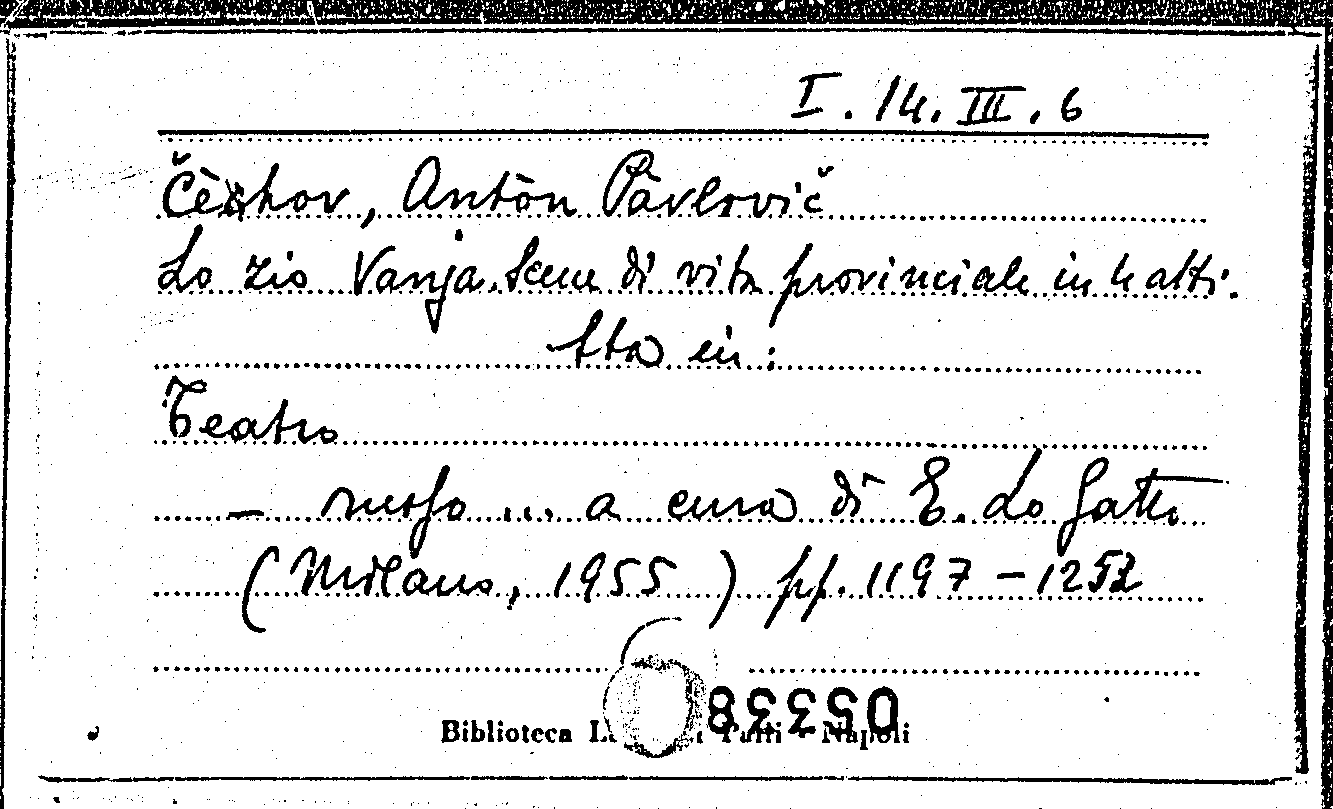 I. 14. III. 6
Čèchov, Antòn Pàvlovič
Lo zio Vanja. Scene di vita provinciale in 4 atti.
Sta in:
Teatro
– russo ... a cura di E. Lo Gatto
(Milano, 1955) pp. 1197 – 1252
053338
Biblioteca Napoli